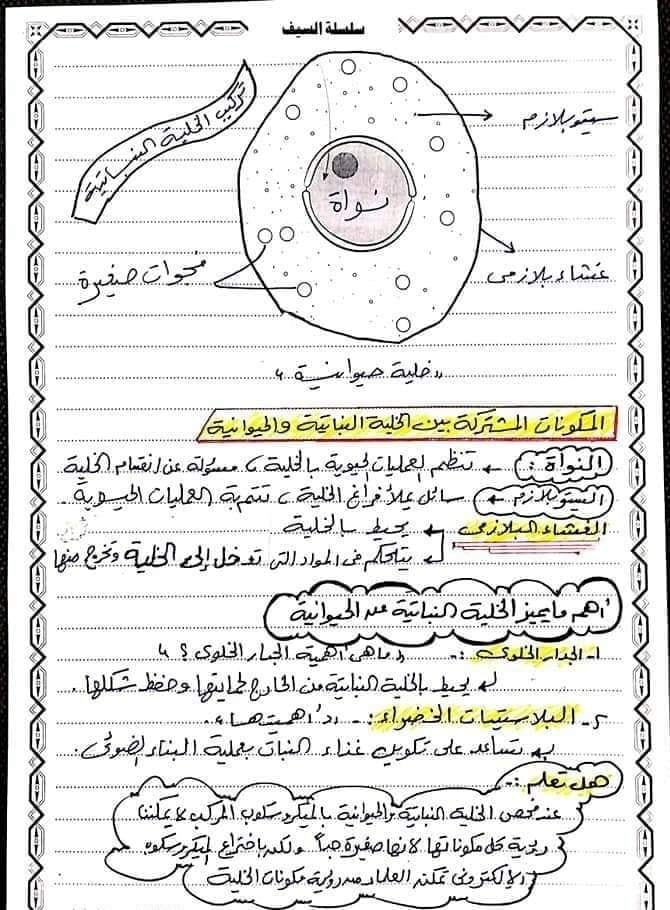 سلسلة السيف
تركيب الخلية النباتية
سيتوبلازم
نواة
غشاء بلازمى
فجوات صغيرة
"خلية حيوانية"
المكونات المشتركة بين الخلية النباتية والحيوانية
النواة :- تنظم العمليات الحيوية بالخلية ، مسئولة عن انقسام الخلية
السيتوبلازم :- سائل يملأ فراغ الخلية ، تتم به العمليات الحيوية
الغشاء البلازمى يحيط بالخلية
يتحكم فى المواد التى تدخل إلى الخلية وتخرج منها
أهم ما يميز الخلية النباتية عن الحيوانية
١- الجدار الخلوى :- "ما هى أهمية الجدار الخلوى ؟"
يحيط بالخلية النباتية من الخارج لحمايتها وحفظ شكلها .
٢- البلاستيدات الخضراء :- "أهميتها"
تساعد على تكوين غذاء النبات بعملية البناء الضوئى .
هل تعلم :-
عند فحص الخلية النباتية والحيوانية بالميكروسكوب المركب لا يمكننا
رؤية كل مكوناتها لأنها صغيرة جداً ولكن باختراع الميكروسكوب
الإلكترونى تمكن العلماء من رؤية مكونات الخلية